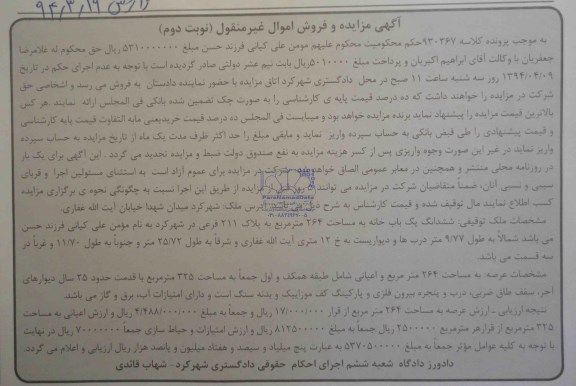 وارش ۹۴،۳،۱۶
آگهی مزایده و فروش اموال غیرمنقول (نوبت دوم)
به موجب پرونده کلاسه ۹۳۰۳۶۷ حکم محکومیت محکوم علیهم مومن علی کیانی فرزند حسن مبلغ ۵۳۱۰۰۰۰۰۰۰ ریال حق محکوم له غلامرضا
جعفریان با وکالت آقای ابراهیم اکبریان و پرداخت مبلغ ۵۰۱۰۰۰۰ ریال بابت نیم عشر دولتی صادر گردیده است با توجه به عدم اجرای حکم در تاریخ
۱۳۹۴/۰۴/۰۹ روز سه شنبه ساعت ۱۱ صبح در محل دادگستری شهرکرد اتاق مزایده با حضور نماینده دادستان به فروش می رسد و اشخاصی حق
شرکت در مزایده را خواهند داشت که ده درصد قیمت پایه ی کارشناسی را به صورت چک تضمین شده بانکی فی المجلس ارائه نمایند. هر کس
بالاترین قیمت مزایده را پیشنهاد نماید برنده مزایده خواهد بود و میبایست فی المجلس ده درصد قیمت خرید یعنی مابه التفاوت قیمت پایه کارشناسی
و قیمت پیشنهادی را طی قبض بانکی به حساب سپرده واریز نماید و مابقی مبلغ را حد اکثر ظرف مدت یک ماه از تاریخ مزایده به حساب سپرده
واریز نماید در غیر این صورت وجوه واریزی پس از کسر هزینه مزایده به نفع صندوق دولت ضبط و مزایده تجدید می گردد . این آگهی برای یک بار
در روزنامه محلی منتشر و همچنین در معابر عمومی الصاق خواهد شد شرکت در مزایده برای عموم آزاد است به استثنای مسئولین اجرا و اقربای
سببی و نسبی آنان، ضمناً متقاضیان شرکت در مزایده می توانند ۵ روز قبل از مزایده از طریق این اجرا نسبت به چگونگی نحوه ی برگزاری مزایده
کسب اطلاع نمایند مال توقیف شده و قیمت کارشناس به شرح ذیل می باشد. آدرس ملک: شهرکرد میدان شهدا خیابان آیت الله غفاری.
مشخصات ملک توقیفی: ششدانگ یک باب خانه به مساحت ۲۶۴ مترمربع به پلاک ۲۱۱ فرعی در شهرکرد به نام مؤمن علی کیانی فرزند حسن
می باشد شمالاً به طول ۹/۷۷ متر درب ها و دیواریست به خ ۱۲ متری آیت الله غفاری و شرقاً به طول ۲۵/۷۲ متر و جنوباً به طول ۱۱/۷۰ و غرباً در
سه قسمت می باشد.
مشخصات عرصه: به مساحت ۲۶۴ متر مربع و اعیانی شامل طبقه همکف و اول جمعاً به مساحت ۳۲۵ مترمربع با قدمت حدود ۲۵ سال دیوارهای
آجر، سقف طاق ضربی، درب و پنجره بیرون فلزی و پارکینگ کف موزاییک و بدنه سنگ است و دارای امتیازات آب، برق و گاز می باشد.
نتیجه ارزیابی ـ ارزش عرصه به مساحت ۲۶۴ متر مربع از قرار ۱۷/۰۰۰/۰۰۰ ریال و جمعاً به مبلغ ۴/۴۸۸/۰۰۰/۰۰۰ ریال و ارزش اعیانی به مساحت
۳۲۵ مترمربع از قرار هر مترمربع ۲۵۰۰۰۰۰ ریال جمعاً به مبلغ ۸۱۲۵۰۰۰۰۰ ریال و ارزش امتیازات و حیاط سازی جمعاً ۷۰۰۰۰۰۰۰ ریال در نهایت
با توجه به کلیه عوامل مؤثر جمعاً به مبلغ ۵۳۷۰۵۰۰۰۰۰ به عبارت پنج میلیاد و سیصد و هفتاد میلیون و پانصد هزار ریال ارزیابی و اعلام می گردد.
دادورز دادگاه شعبه ششم اجرای احکام حقوقی دادگستری شهرکرد - شهاب قائدی